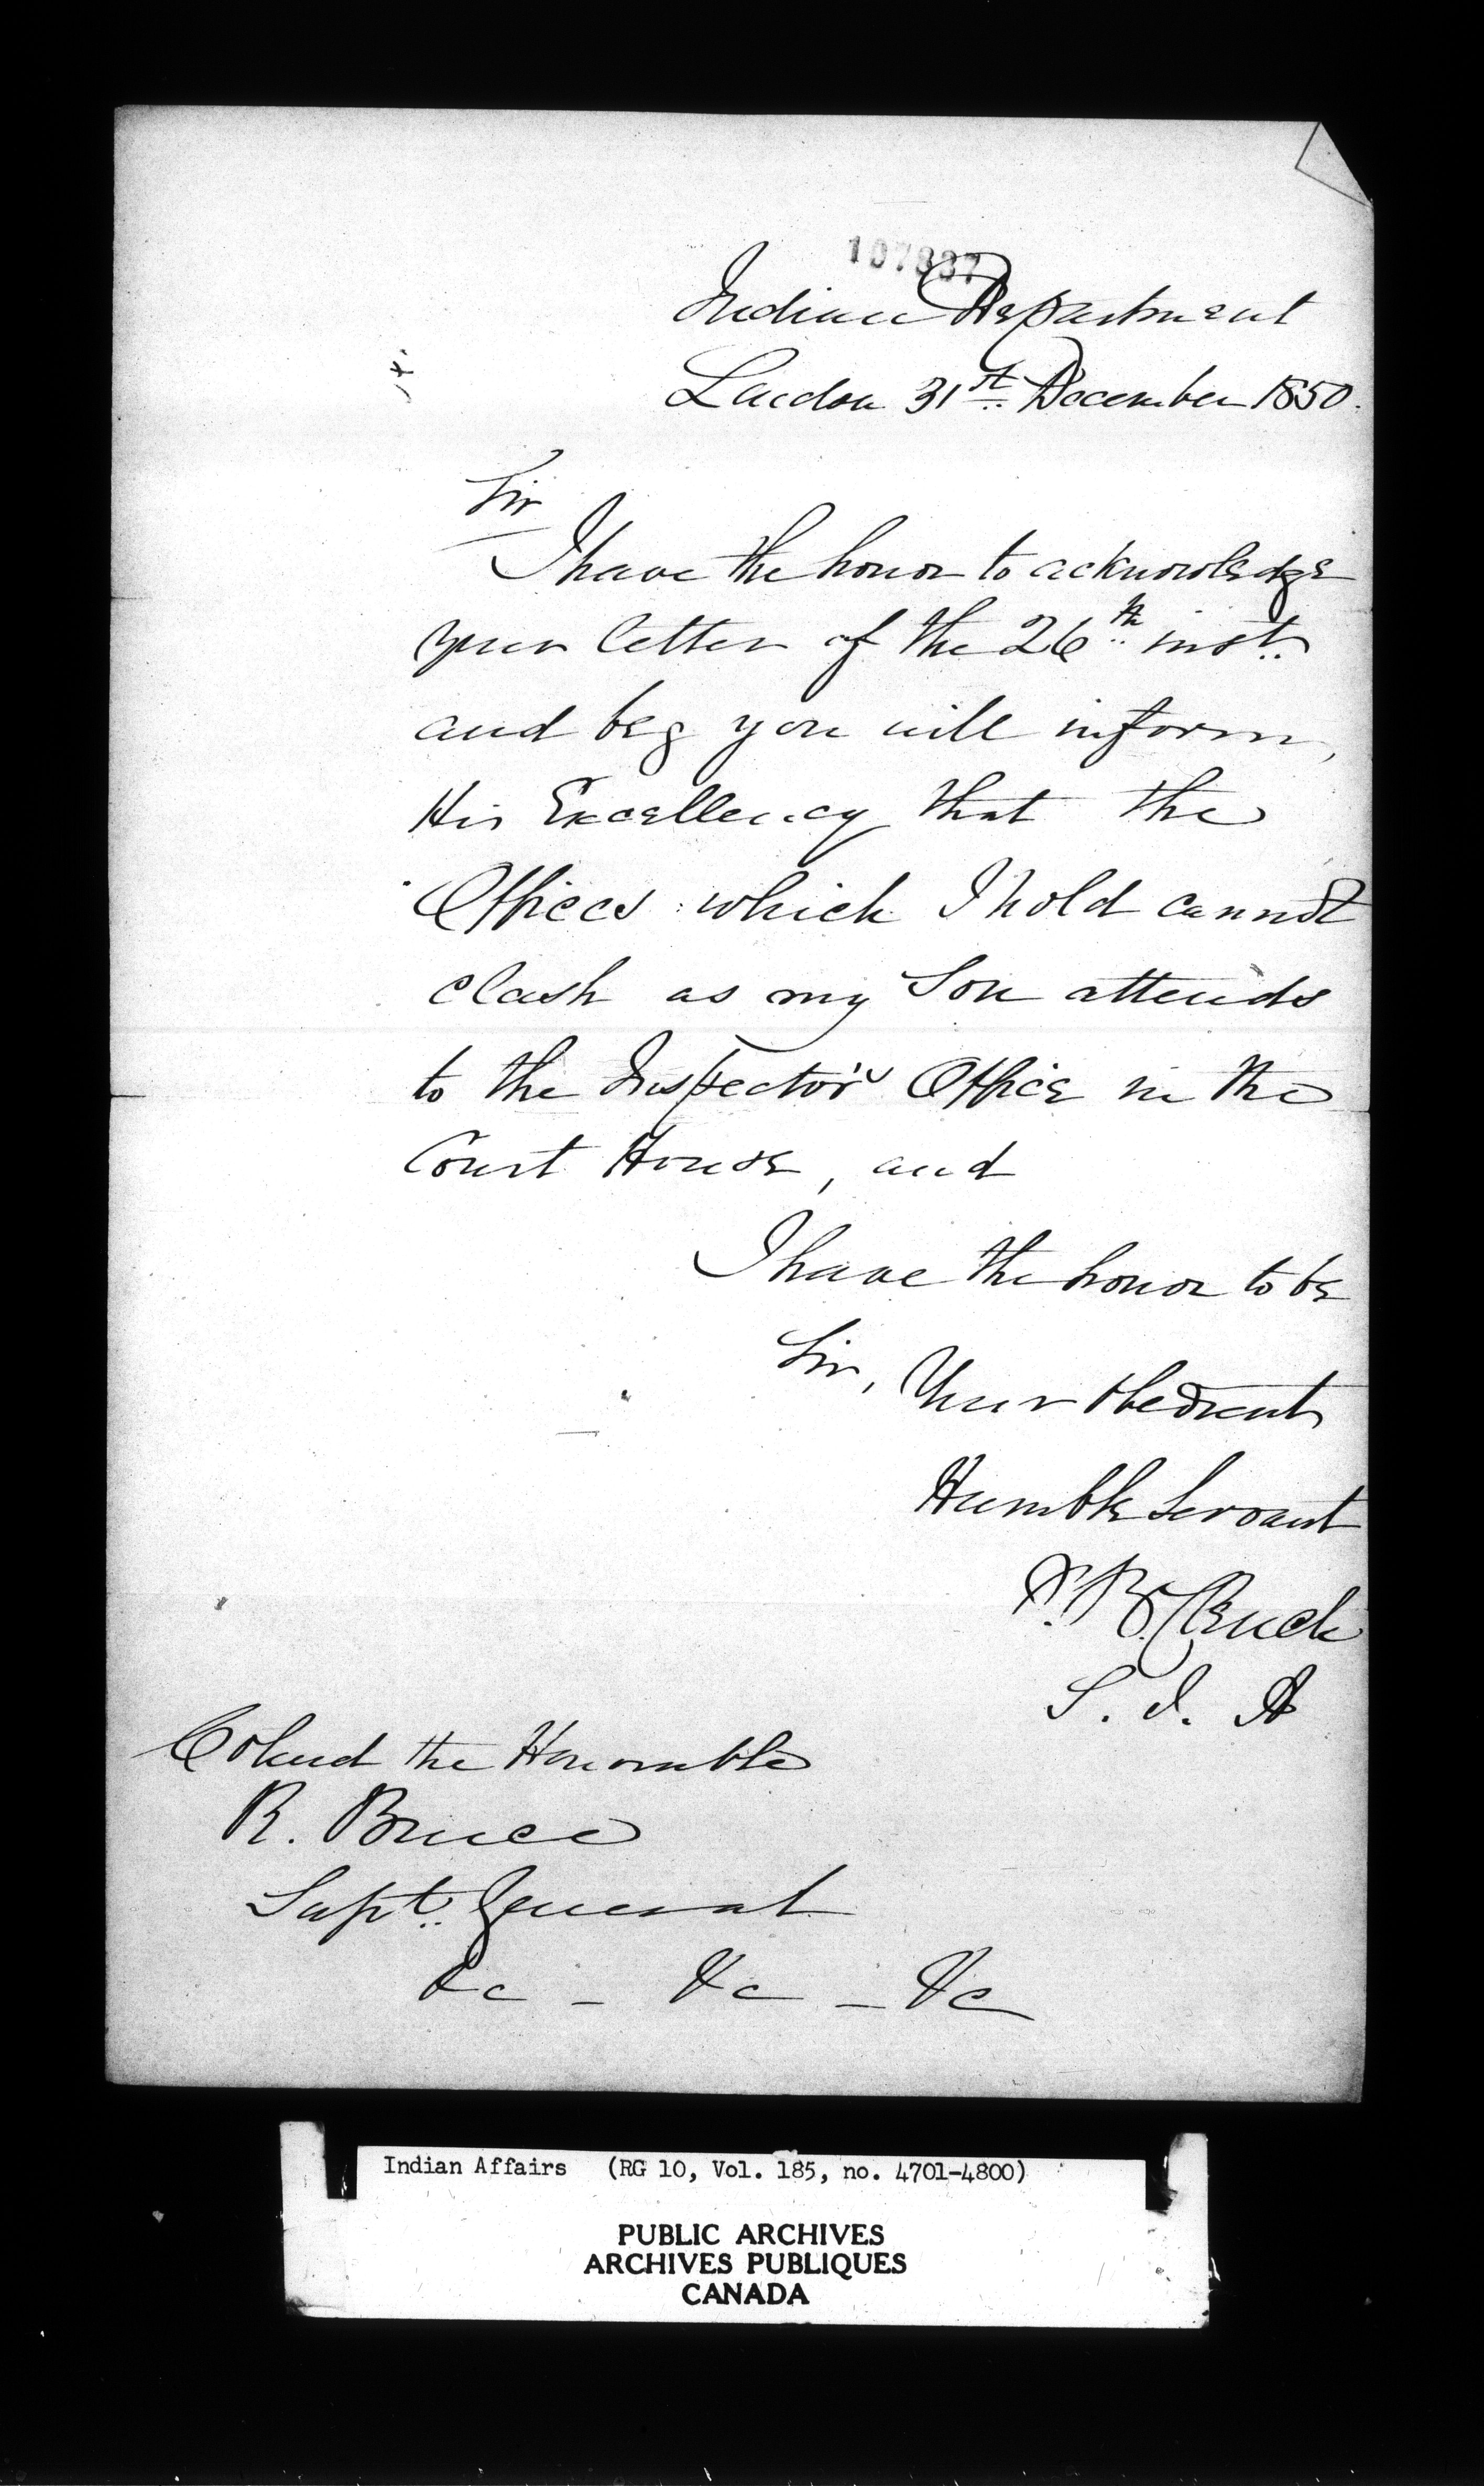 107837
Indian Department
London 31st December 1850.
Sir
I have the honor to acknowledge
your letter of the 26th inst.
and beg you will inform,
His Excellency that the
Offices which I hold cannot
clash as my Son attends
to the Inspector's Office in the
Court House, and
I have the honor to be
Sir, Your obedient
Humble Servant
B. Cluck
S. I. A
Colonel the Honorable
R. Bruce
Supt. General
&c - &c - &c
Indian Affairs (RG 10, Vol. 185, no. 4701-4800)
PUBLIC ARCHIVES
ARCHIVES PUBLIQUES
CANADA